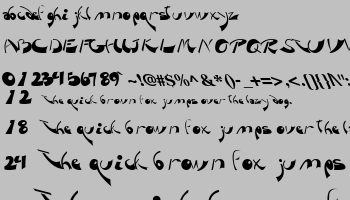 abcdefghijklmnopqrstuvwxyz
ABCDEFGHIJKLMNOPQRSTUVW
0123456789 ~!@#$%^&*()-_+=>,<.{}[]\":
12 The quick brown fox jumps over the lazy dog.
18 The quick brown fox jumps over the la
24 The quick brown fox jumps